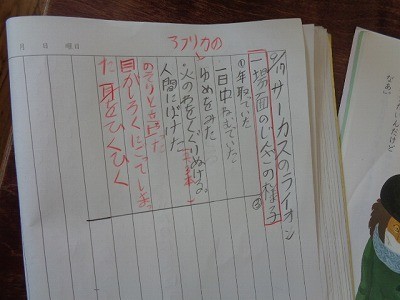 月 日 曜日
サーカスのライオン
一場面のじんざの様子
年取っていた
一日中ねていた
アフリカの
ゆめをみた
火のわをくぐりぬける
人間にばけた
のそりと立った
目がしろくにごってしまっ
た 耳をひくひく